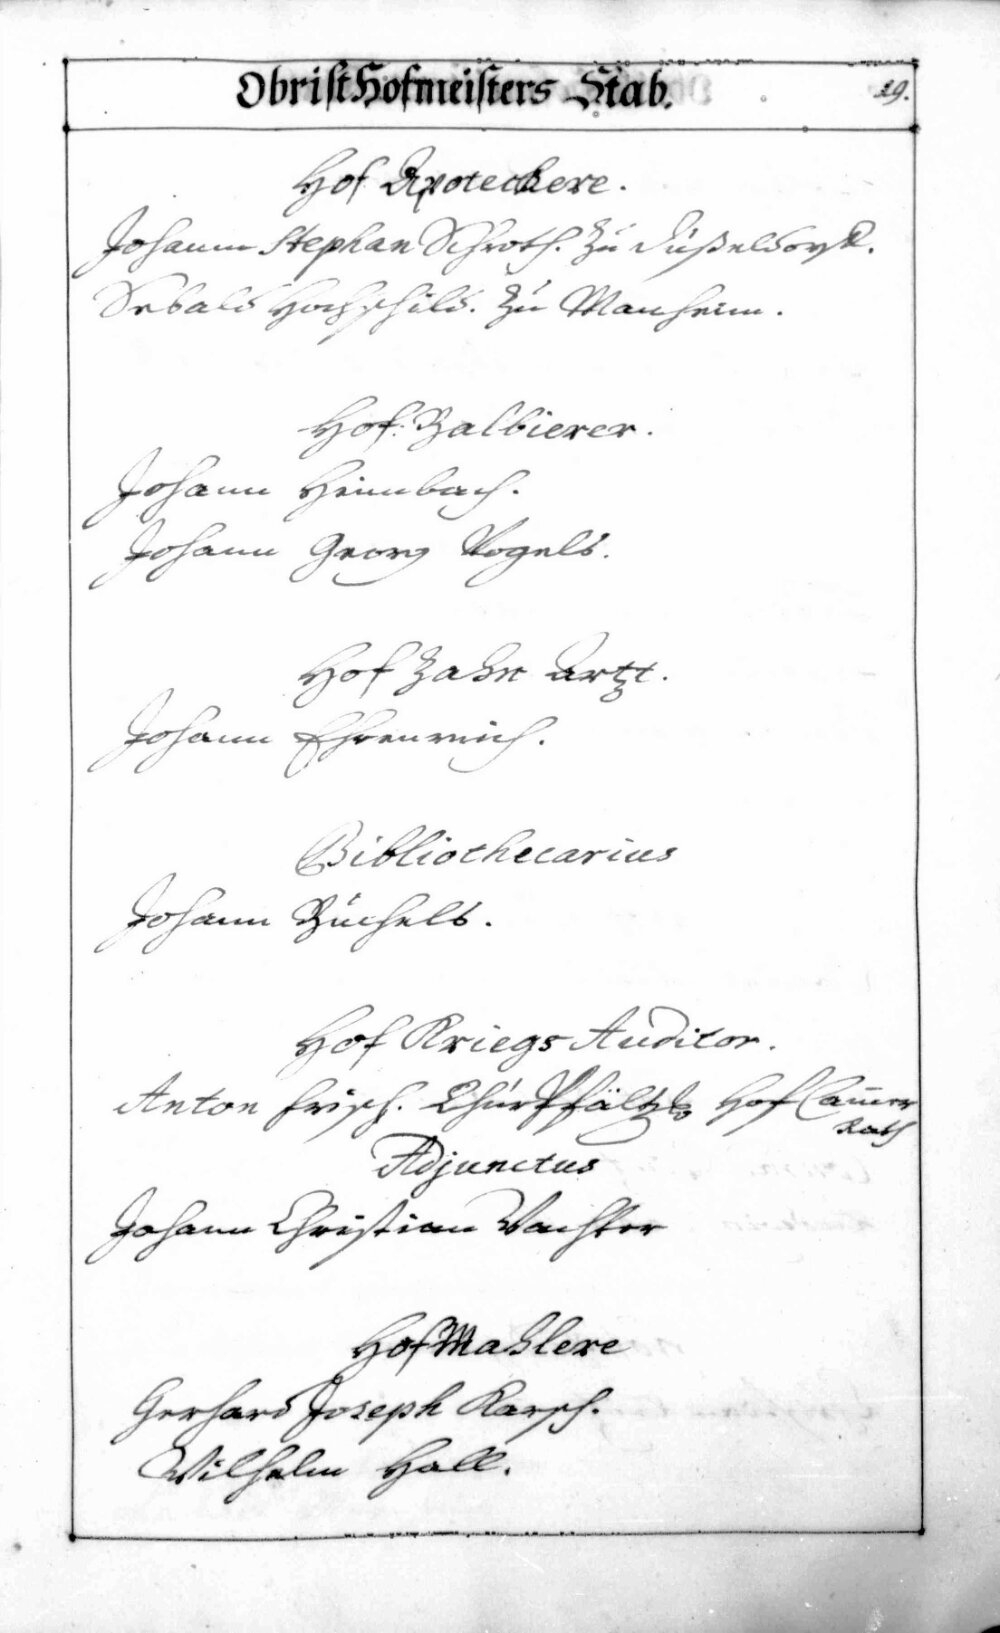 Obrist Hofmeisters Stab.
19.
Hof Apoteckere.
Johann Stephan Schroth. Zu Düßeldorff.
Sebald Hochschild. Zu Manheim.
Hof: Balbierer.
Johann Heimbach.
Johann Georg Vogels.
Hof Zahn Artzt.
Johann Ehrenreich.
Bibliothecarius
Johann Büchels.
Hof Kriegs Auditor.
Anton Frisch. ChurPfältz. Hof Camer
Rath
Adjunctus
Johann Christian Wachter
Hof Mahlere
Gerhard Joseph Karsch.
Wilhelm Hall.